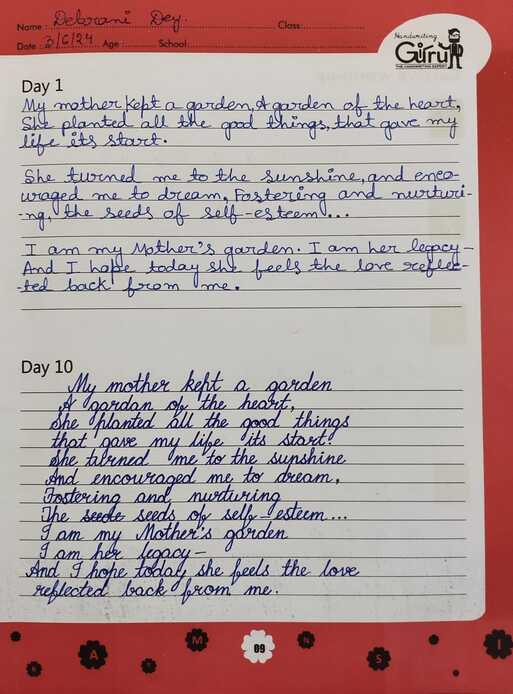 Name : Debrani Dey. Class:
Date : 3/6/24 Age : School:
Handwriting
Guru
THE HANDWRITING EXPERT
Day 1
My mother kept a garden, A garden of the heart,
She planted all the good things, that gave my
life its start.
She turned me to the sunshine, and enco-
uraged me to dream, Fostering and nurturi-
-ng, the seeds of self-esteem...
I am my Mother's garden. I am her legacy-
And I hope today she feels the love reflec-
-ted back from me.
Day 10
My mother kept a garden
A gardan of the heart,
She planted all the good things
that gave my life its start.
She turned me to the sunshine
And encouraged me to dream,
Fostering and nurturing
The seeds of self-esteem...
I am my Mother's garden
I am her legacy-
And I hope today she feels the love
reflected back from me.
A M 09 N S I